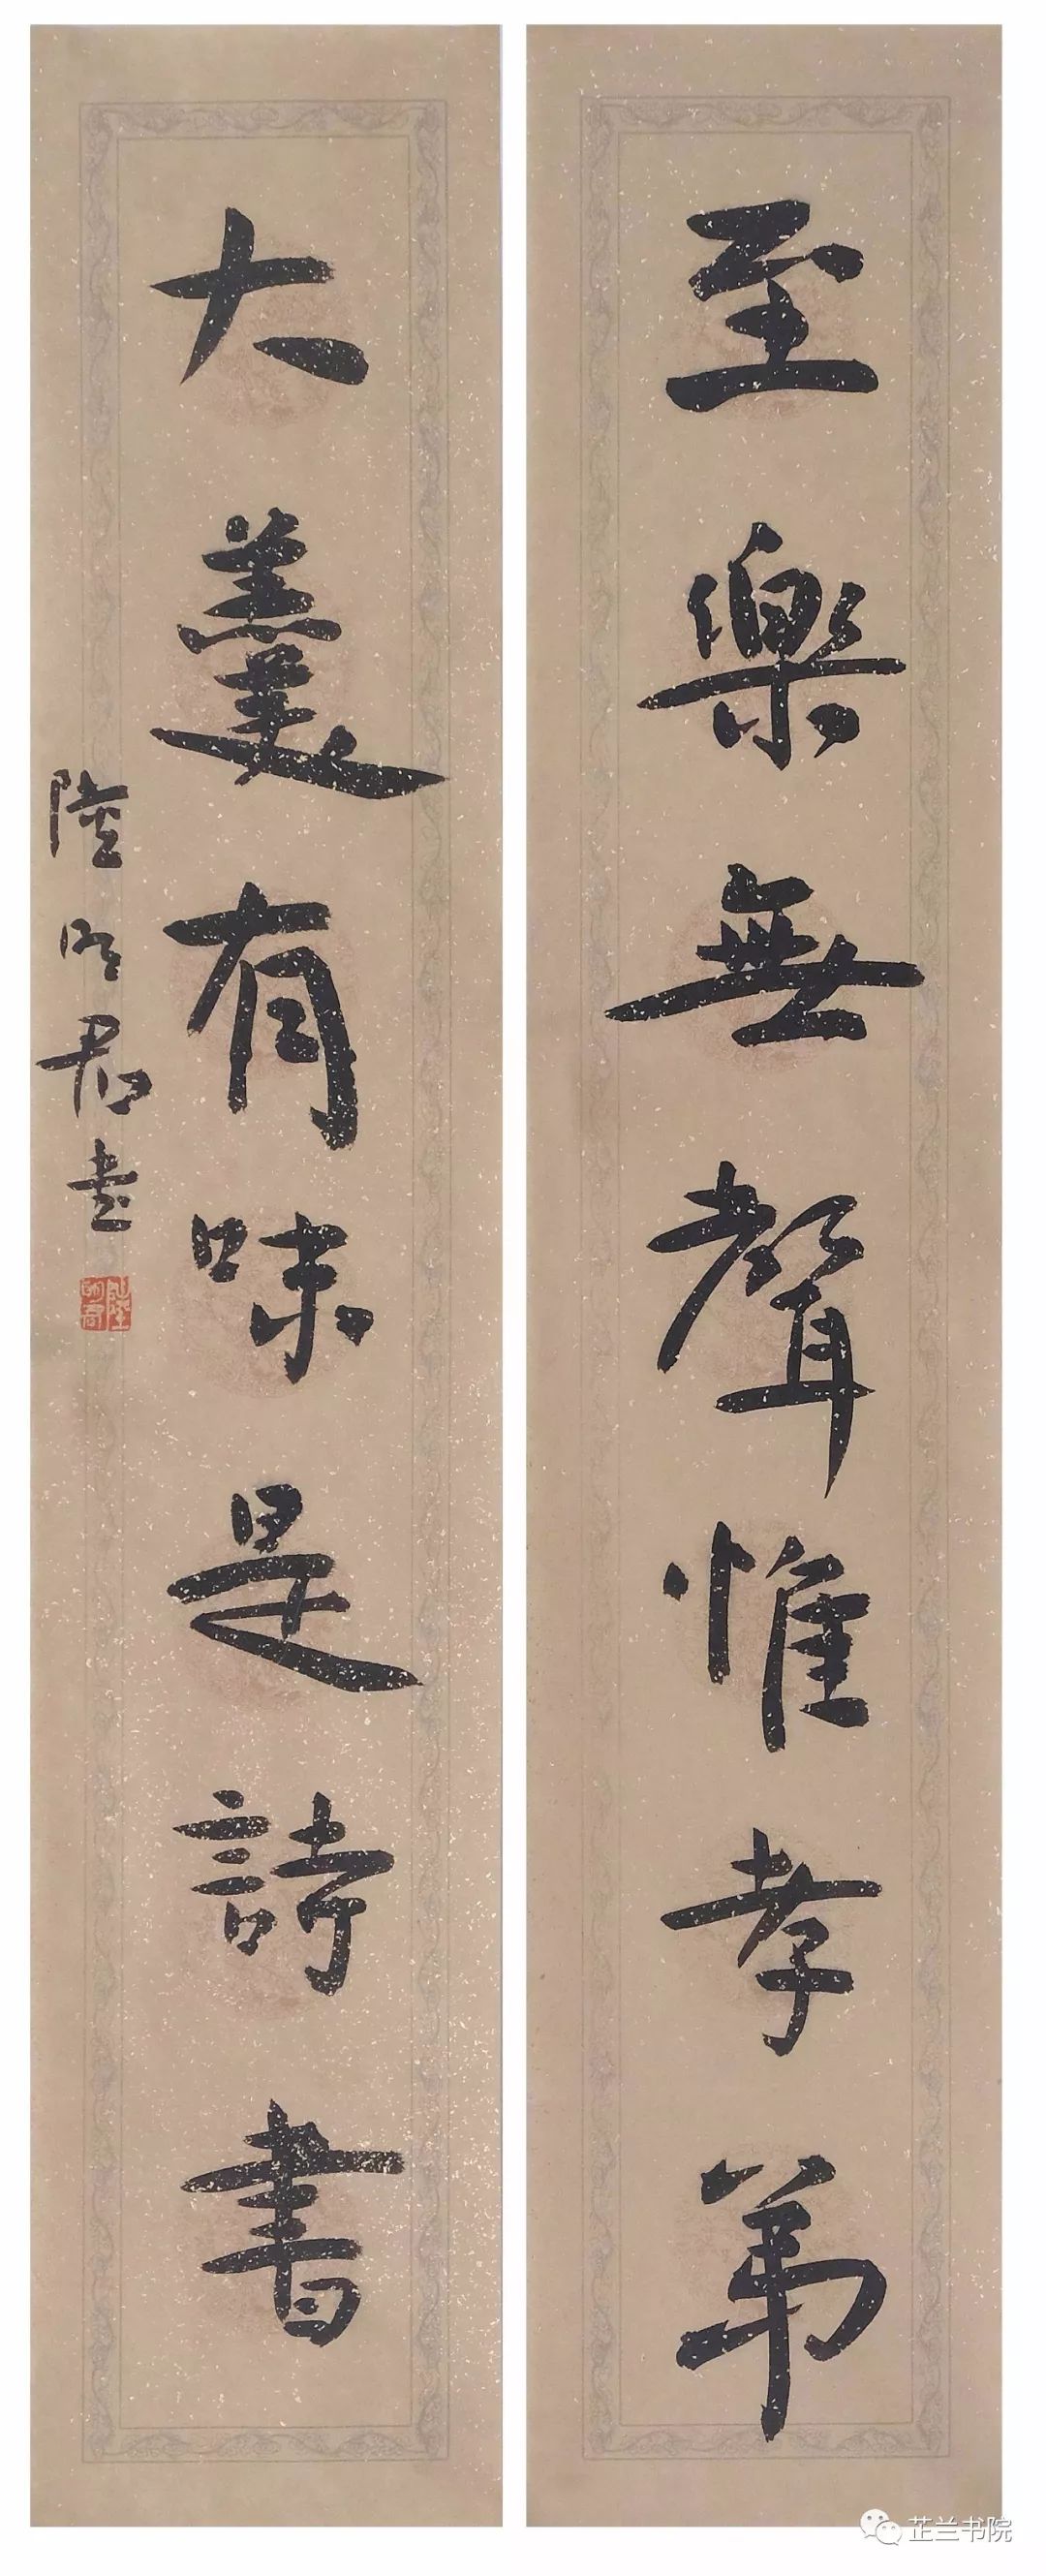 至樂無聲惟孝弟
大羹有味是詩書
陸明君書
陸明君
芷兰书院